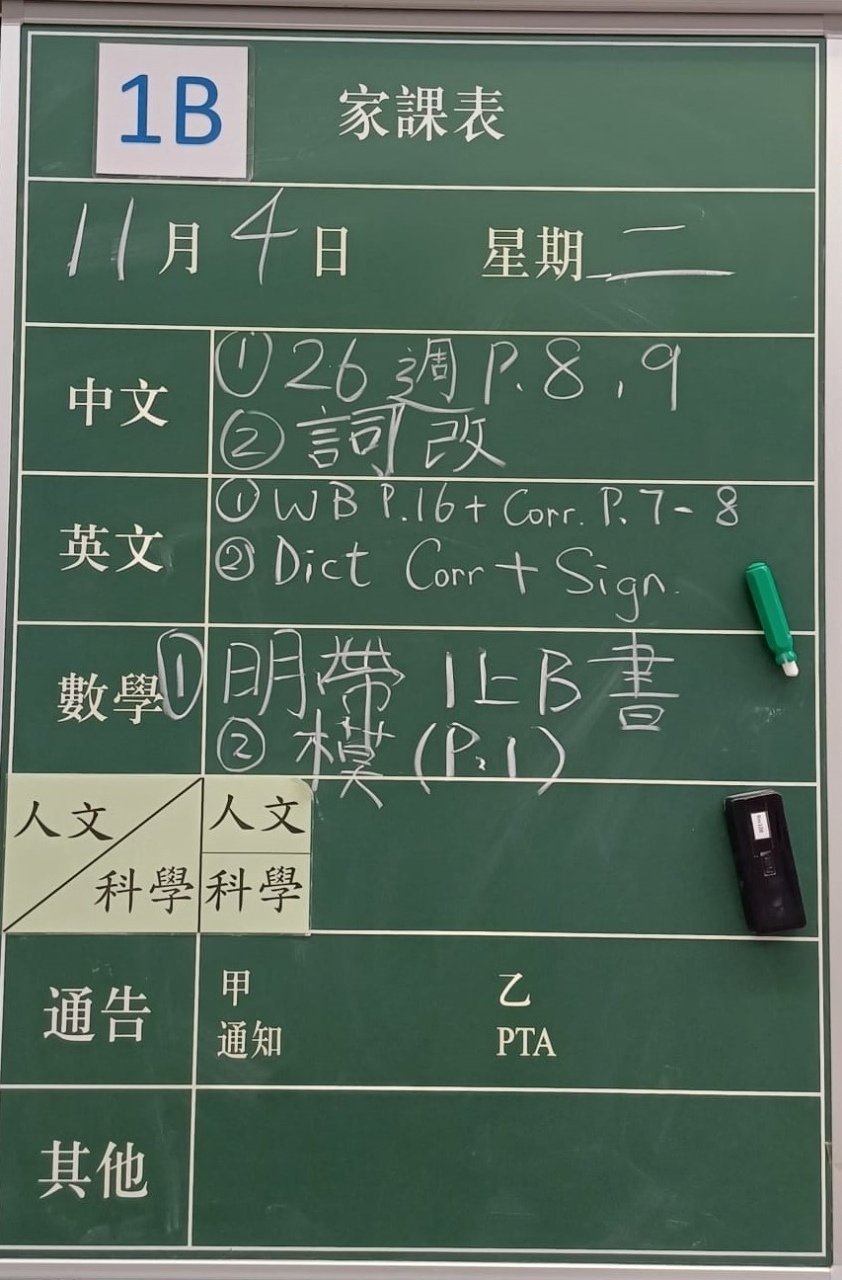 1B 家課表
11月4日 星期二
中文 ① 26週 P.8, 9
② 詞改
英文 ① WB P.16 + Corr. P.7-8
② Dict Corr + Sign.
數學 ① 明帶 1上B書
② 模 (P.1)
人文 人文
科學 科學
通告 甲 乙
通知 PTA
其他